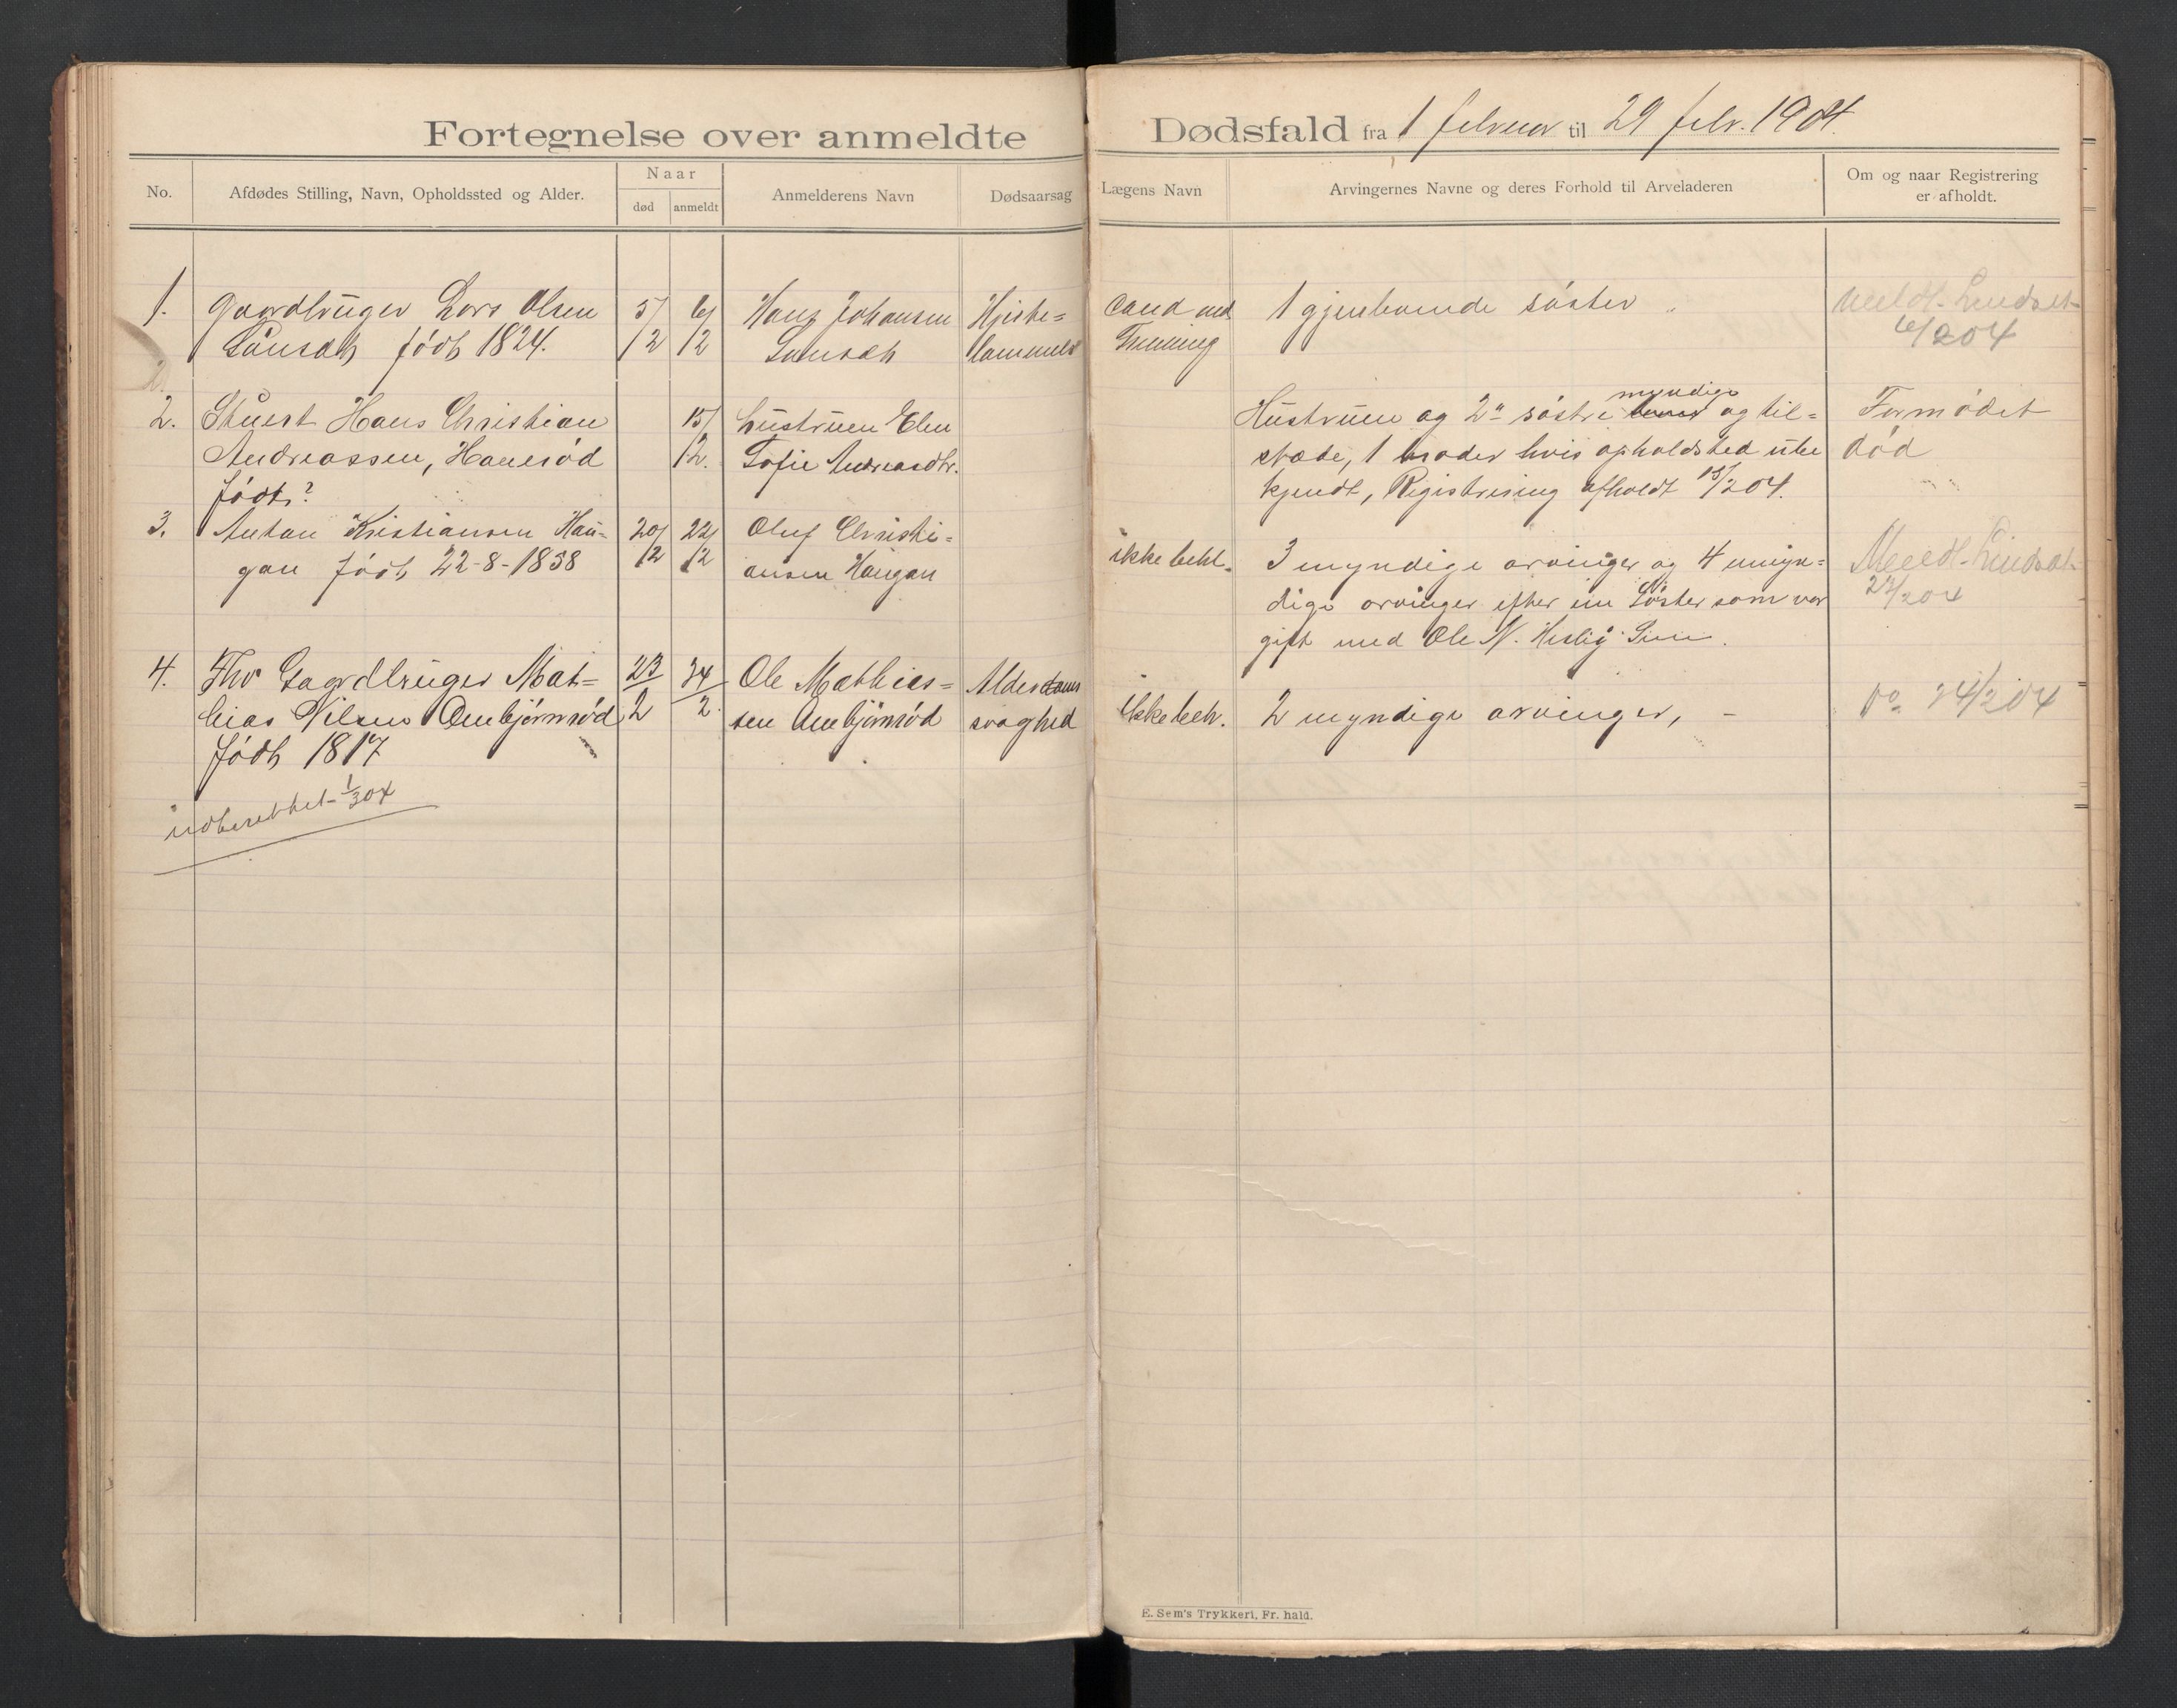 Fortegnelse over anmeldte Dødsfald fra 1 februar til 29 febr. 1904.
No.
Afdødes Stilling, Navn, Opholdssted og Alder.
Naar
død
anmeldt
Anmelderens Navn
Dødsaarsag
Lægens Navn
Arvingernes Navne og deres Forhold til Arveladeren
Om og naar Registrering
er afholdt.
1.
Gaardbruger Lars Olsen
født 1824.
5/
/2
6/
/2
Hans Johansen
Hjerte=
lammels
Cand med
1 gjenboende søster
6/204
2.
Stuert Hans Christian
Andreassen, Hauersød
født?
15/
/2.
hustruen Elen
Sofie Andreasdtr.
Hustruen og 2 søstre myndige og til=
stæde, 1 broder hvis opholdsted ube
kjendt, Registrering afholdt 15/204.
Formodet
død
3.
Antan Kristiansen Hau=
gan født 22-8-1838
20/
/2
22/
/2
Oluf Christi=
ansen Haugan
ikke beht.
3 myndige arvinger og 4 umyn=
dige arvinger efter en Søster som var
gift med Ole N.
Meldt Lindset
4.
Fhv Gaardbruger Mat=
hias Nilsen Ombjørnrød
født 1817
23
2
24
2.
Ole Mathias=
sen Ombjørnrød
Alderdoms
svaghed
ikke beh.
2 myndige arvinger, -
Do 24/204
indberettet 1/304
E. Sem's Trykkeri, Fr. hald.